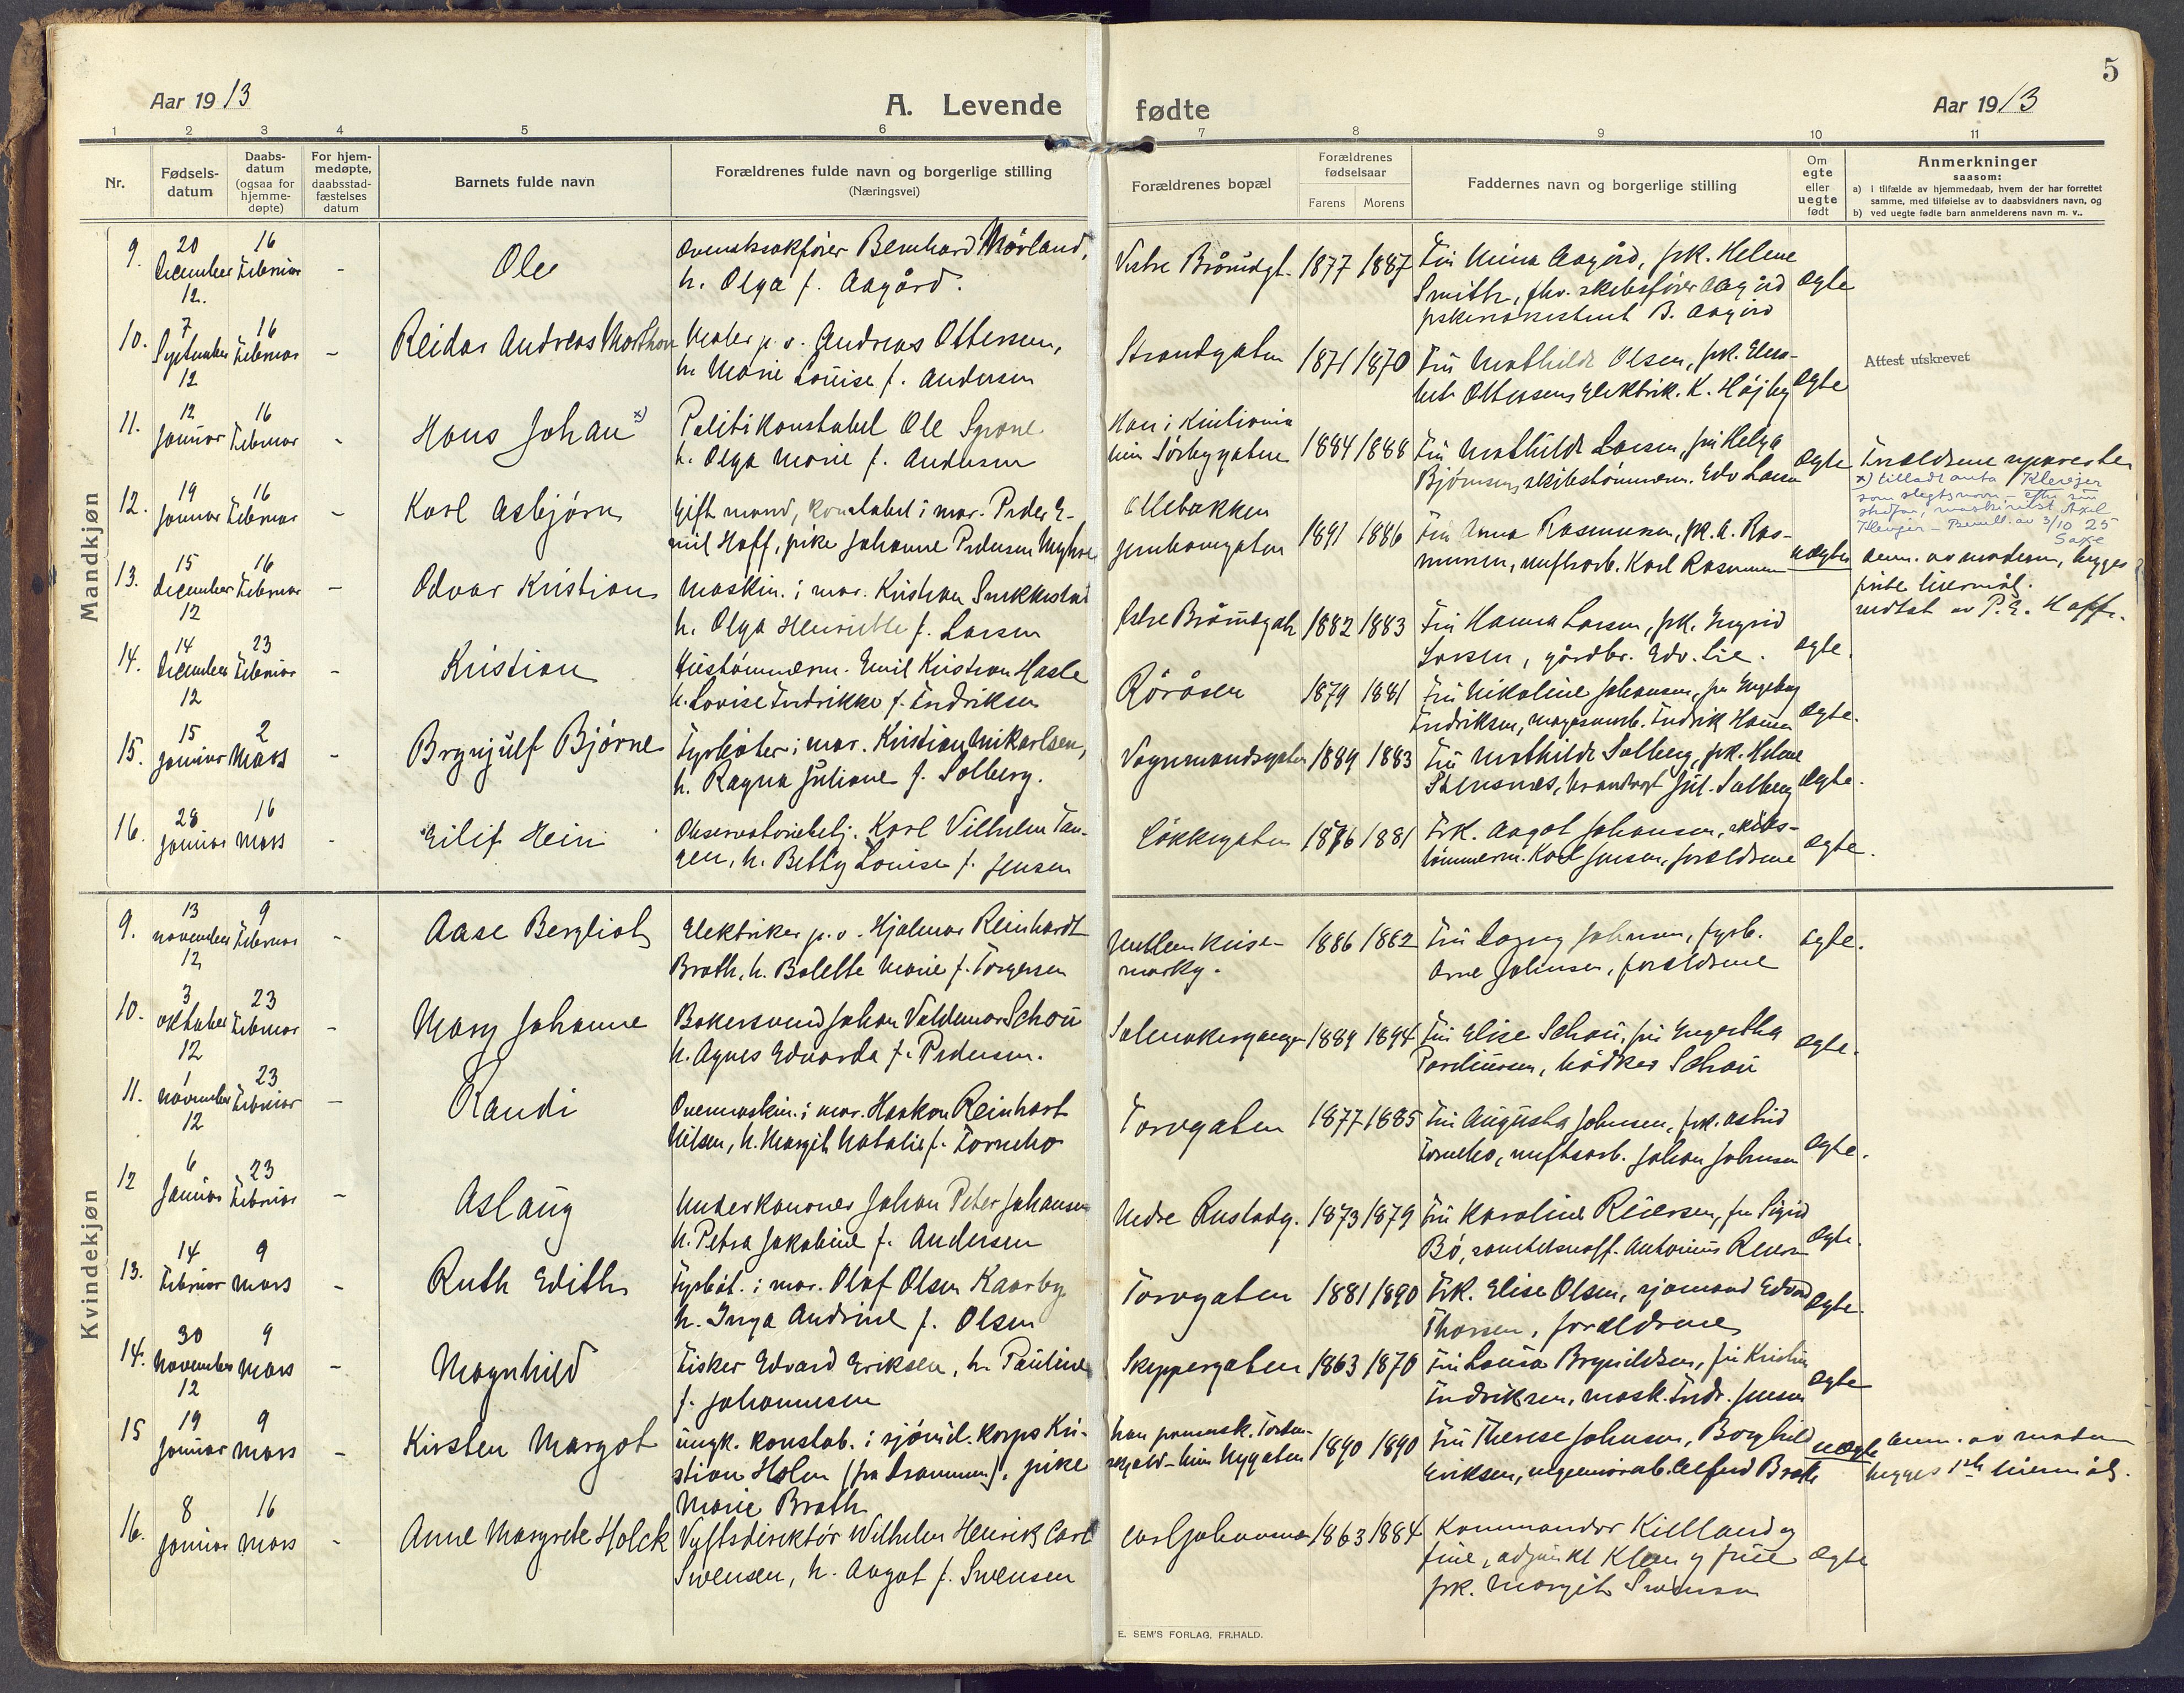 5
Aar 1913
A. Levende fødte
Aar 1913
1 2 3 4 5 6 7 8 9 10 11
Nr.
Fødsels-
datum
Daabs-
datum
(ogsaa for
hjemme-
døpte)
For hjem-
medøpte,
daabsstad-
fæstelses
datum
Barnets fulde navn
Forældrenes fulde navn og borgerlige stilling
(Næringsvei)
Forældrenes bopæl
Forældrenes
fødselsaar
Farens Morens
Faddernes navn og borgerlige stilling
Om
egte
eller
uegte
født
Anmerkninger
saasom:
a) i tilfælde av hjemmedaab, hvem der har forrettet
samme, med tilføielse av to daabsvidners navn, og
b) ved uegte fødte barn anmelderens navn m. v..
Mandkjøn
9. 20 December 12. 16 Februar - Ole
Overretssakfører Bernhard Mørland,
h. Olga f. Aagård.
Vestre Brårudgt. 1877 1887
Fru Mina Aagård, frk. Helene
Smith, fhv. skibsfører Aagård
B. Aagård
egte
10. 7 September 12 16 Februar - Reidar Andreas Marthon
Maler p. v. Andreas Ottersen,
h. Marie Louise f. Andersen
Strandgaten 1871 1870
Fru Mathilde Olsen, frk. Elisa-
bet Ottersen, Elektrik. K. Højby
egte
Attest utskrevet
11. 12 Januar 16 Februar - Hans Johan x)
Politikonstabel Ole Sprone
h. Olga Marie f. Andersen
Han i Kristiania
hun Sørbygaten 1884 1888
Fru Mathilde Larsen, fru Helga
Bjørnsen, skibstømmerm. Edv. Larsen
egte
Forældrene
x) tilladt anta Klevejer
som slegtsnavn - efter sin
stedfar, maskinist Axel
Klevejer - Bevill. av 3/10 25
12. 19 Januar 16 Februar - Karl Asbjørn
Gift mand, konstabel i mar. Peder E-
mil Hoff, pike Johanne Pedersen Myhre
Ollebakken
Jernbanegaten 1891 1886
Fru Anna Rasmussen, frk. A. Ras-
mussen, verftsarb. Karl Rasmussen
uegte
anm. av moderen, begges
første leiermål.
vedtat av P. E. Hoff.
13. 15 December 12 16 Februar - Odvar Kristian
Maskin. i mar. Kristian Snekkestad
h. Olga Henriette f. Larsen
Østre Brårudgate 1882 1883
Fru Hanna Larsen, frk. Ingrid
Larsen, gårdbr. Edv. Lie.
egte.
14. 14 December 12 23 Februar - Kristian
Hustømmerm. Emil Kristian Hasle
h. Lovise Fredrikke f. Fredriksen
Røråsen 1879 1881
Fru Nikoline Johansen, fru Ingeborg
Fredriksen, Fredrik Hansen
egte.
15. 15 Januar 2 Mars - Brynjulf Bjørne
Fyrbøter i mar. Kristian Mikarlsen,
h. Ragna Juliane f. Solberg.
Vognmandsgaten 1889 1883
Fru Mathilde Solberg, frk. Helene
Stensnes, Jul. Solberg
egte.
16. 28 Januar 16 Mars - Eilif Hein
Observatoriebetj. Karl Vilhelm Tan-
gen, h. Betty Louise f. Jensen
Løkkegaten 1876 1881
Frk. Aagot Johansen, skibs-
tømmerm. Karl Jensen, forældrene
egte.
Kvindekjøn
9. 13 November 12 9 Februar - Aase Bergliot
Elektriker p. v. Hjalmar Reinhardt
Bråth, h. Bolette Marie f. Torgersen
Mellem Keiser-
markg. 1886 1882
Fru Dagny Johnsen, fyrb.
Arne Johnsen, forældrene
egte.
10. 3 Oktober 12 23 Februar - Mary Johanne
Bakersvend Johan Valdemar Schou
h. Agnes Edvarda f. Pedersen.
Salmakergangen 1889 1894
Fru Elise Schou, fru Ingertha
Pauliussen, bødker Schou
egte.
11. 1 November 12 23 Februar - Randi
Overmaskin. i mar. Haakon Reinhart
Nilsen, h. Margit Natalie f. Torneho
Torvgaten 1877 1885
Fru Augusta Johnsen, frk. Astrid
Torneho, verftsarb. Johan Johnsen
egte.
12 6 Januar 23 Februar - Aslaug
Underkanoner Johan Peter Johansen
h. Petra Jakobine f. Andersen
Nedre Rustadg. 1873 1879
Fru Karoline Reiersen, fru Sigrid
Bø, Antonius Reiersen
egte.
13. 14 Februar 9 Mars - Ruth Edith
Fyrbøt. i mar. Olaf Olsen Kaarby
h. Inga Andrine f. Olsen
Torvgaten 1881 1890
Frk. Elise Olsen, sjømand Edvard
Thorsen, forældrene
egte.
14. 30 November 12 9 Mars - Magnhild
Fisker Edvard Eriksen, h. Pauline
f. Johannesen
Skeppergaten 1863 1870
Fru Lovisa Brynildsen, fru Kristine
Fredriksen, mask. Fredr. Jensen
egte
15 19 Januar 9 Mars - Kirsten Margot
ungk. konstab. i sjømil. korps Kri-
stian Holm (fra Drammen), pike
Marie Bråth
Nygaten 1890 1890
Fru Therese Johnsen, Borghild
Eriksen, Alfred Bråth
uegte
anm. av moderen
begges 1ste leiermål.
16. 8 Januar 16 Mars - Anne Margrete Holck
Verftsdirektør Wilhelm Henrik Carl
Swensen, h. Aagot f. Swensen
Carljohansvern 1863 1884
Kommandør Kielland og
frue, adjunkt Klem og frue
frk. Margit Swensen
egte
E. SEM'S FORLAG, FR.HALD.